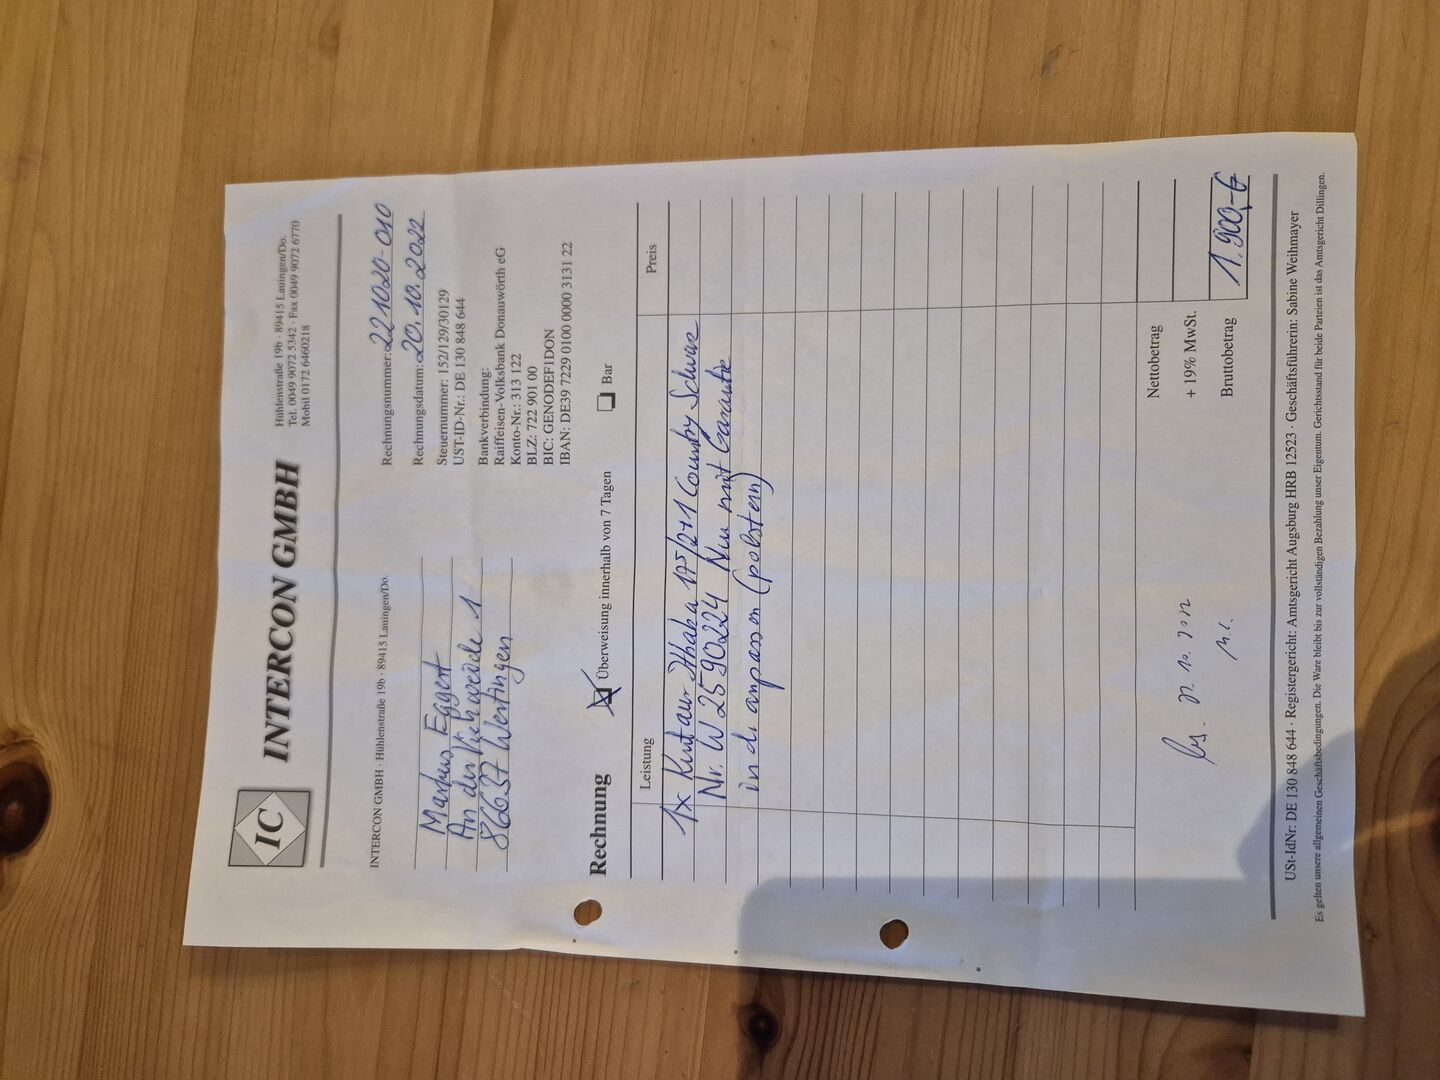 IC
INTERCON GMBH
Hühlenstraße 19b · 89415 Lauingen/Do.
Tel. 0049 9072 5342 · Fax 0049 9072 6770
Mobil 0172 6460218
INTERCON GMBH · Hühlenstraße 19b · 89415 Lauingen/Do.
Markus Eggert
An der Viehweide 1
86637 Wertingen
Rechnungsnummer: 221020-010
Rechnungsdatum: 20.10.2022
Steuernummer: 152/129/30129
UST-ID-Nr.: DE 130 848 644
Bankverbindung:
Raiffeisen-Volksbank Donauwörth eG
Konto-Nr.: 313 122
BLZ: 722 901 00
BIC: GENODEF1DON
IBAN: DE39 7229 0100 0000 3131 22
Rechnung
Überweisung innerhalb von 7 Tagen
Bar
Leistung
Preis
1x Kentaur Ithaka 175/2+1 Country Schwarz
Nr. W 2590224 Neu mit Garantie
indi. anpassen (polstern)
Nettobetrag
+ 19% MwSt.
Bruttobetrag
1.900,-€
USt-IdNr: DE 130 848 644 · Registergericht: Amtsgericht Augsburg HRB 12523 · Geschäftsführerin: Sabine Weihmayer
Es gelten unsere allgemeinen Geschäftsbedingungen. Die Ware bleibt bis zur vollständigen Bezahlung unser Eigentum. Gerichtsstand für beide Parteien ist das Amtsgericht Dillingen.